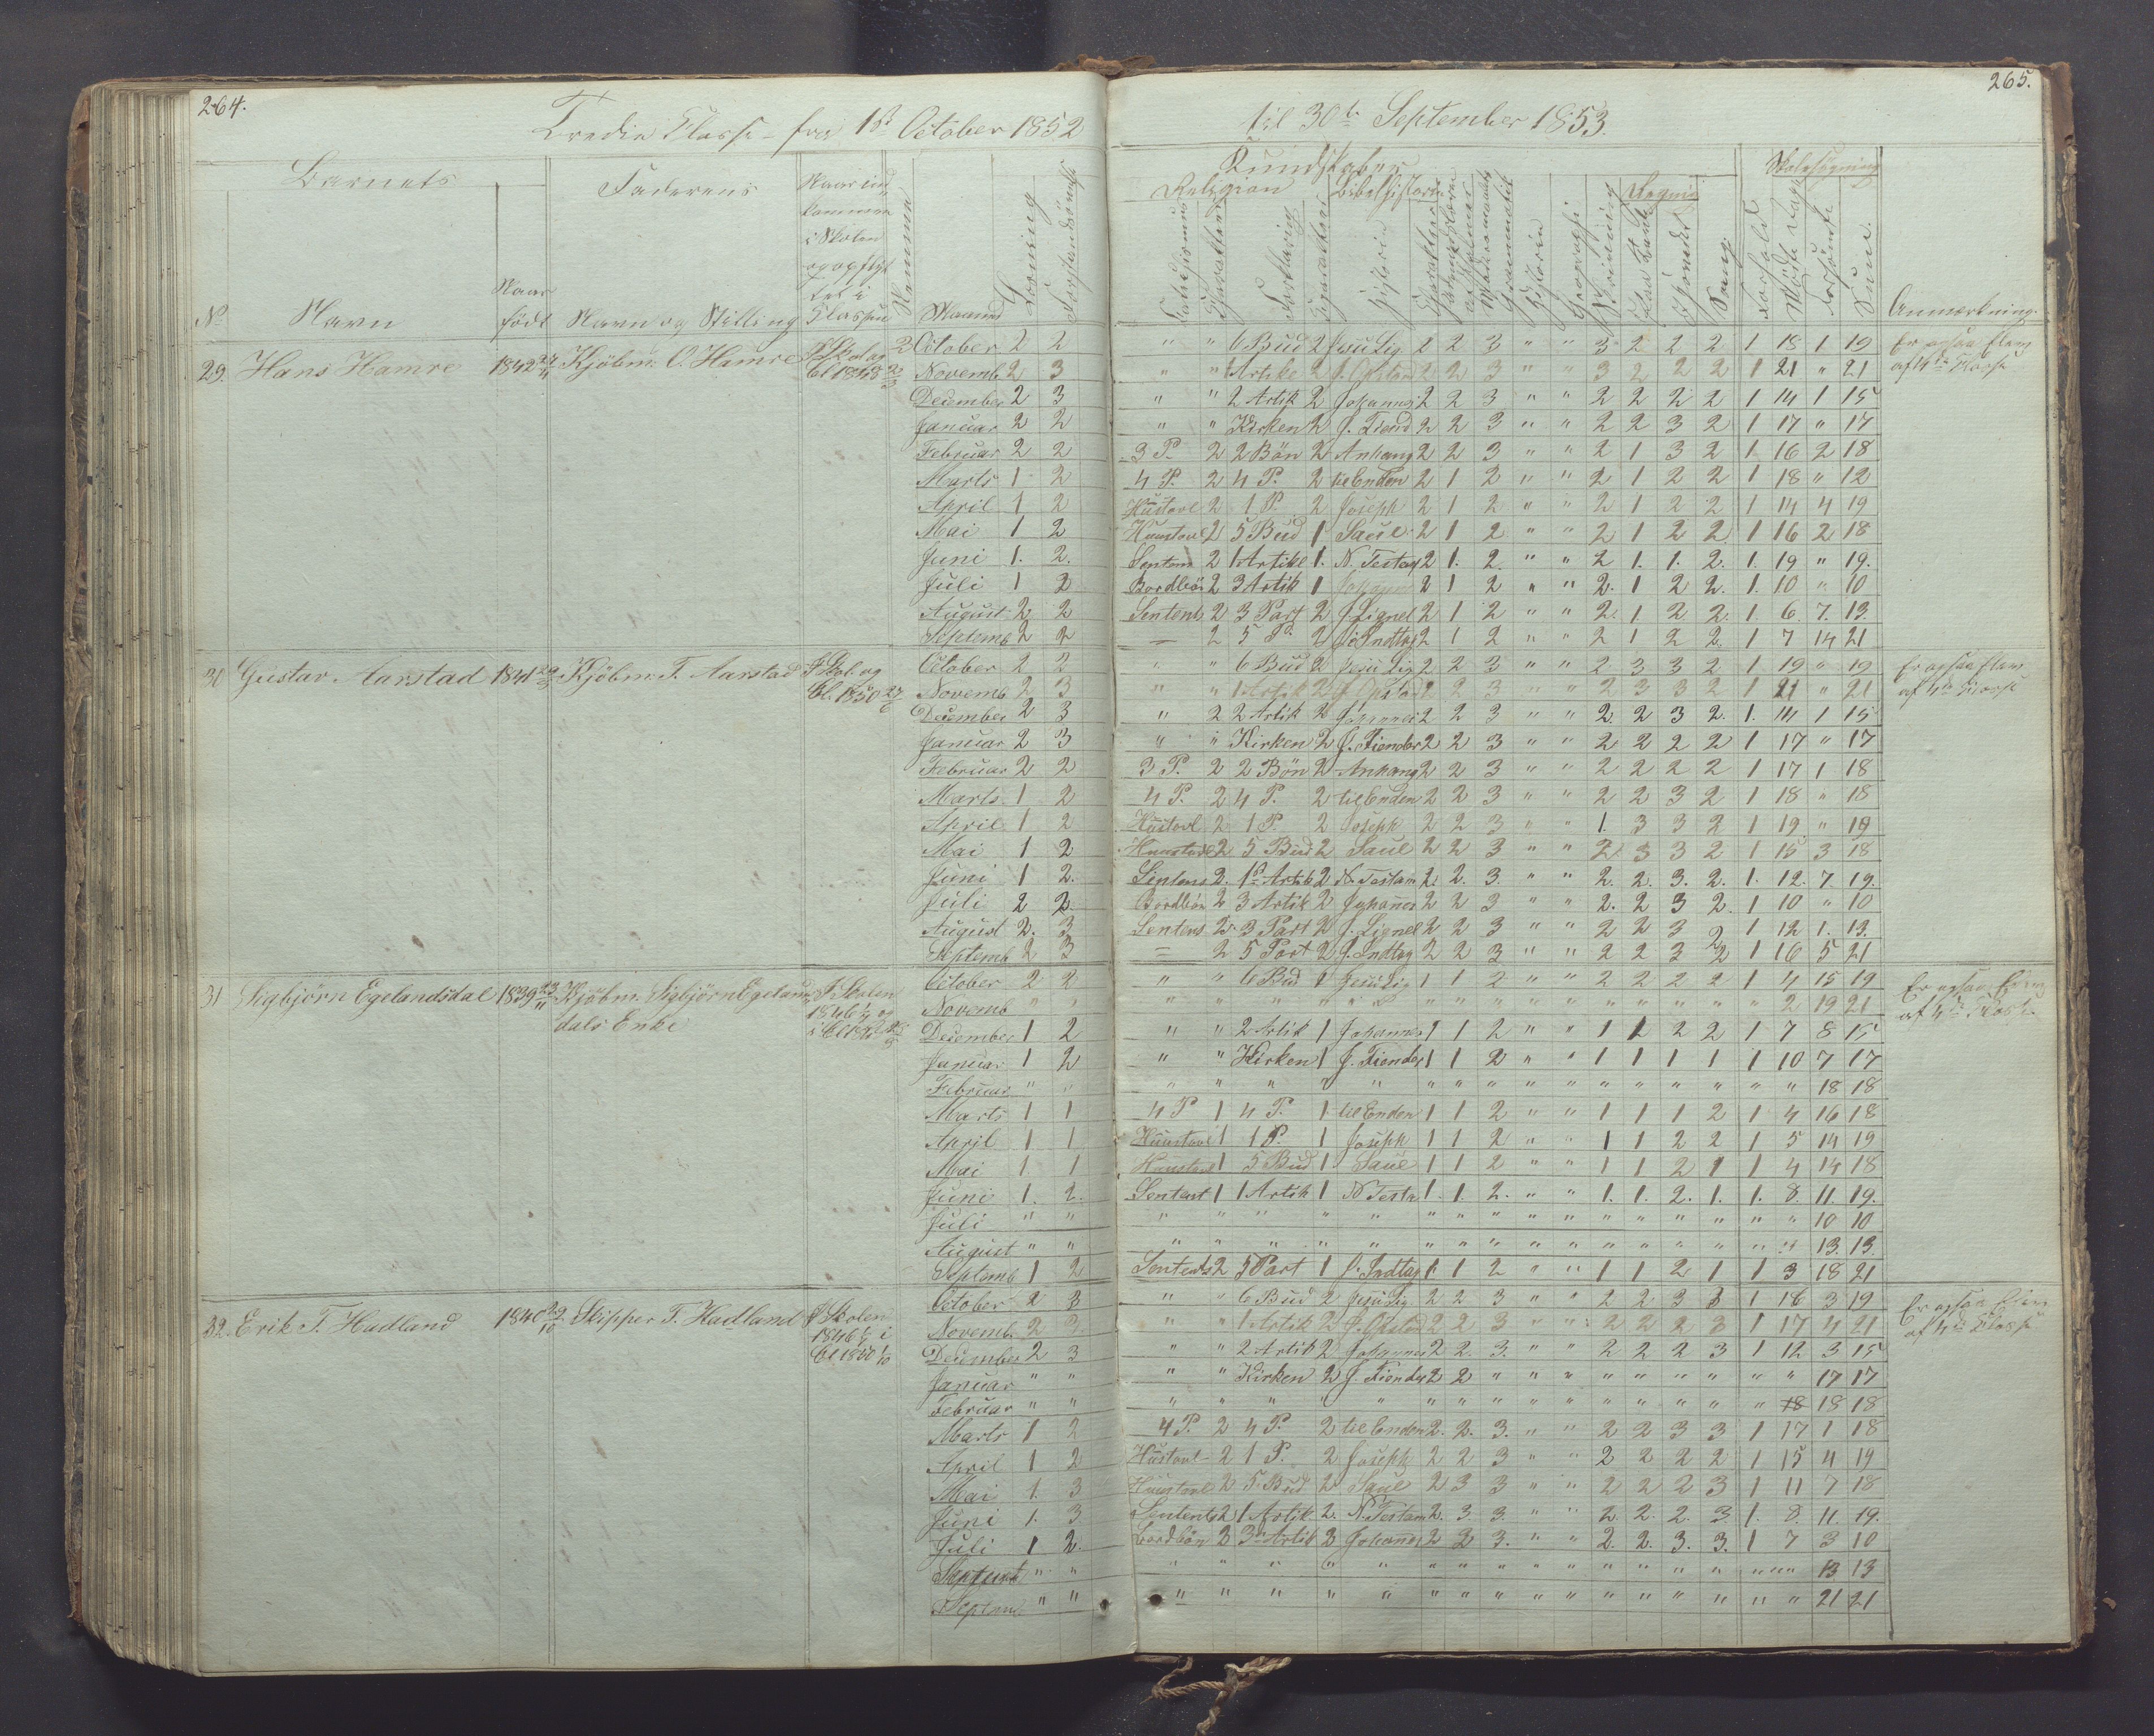 264.
Tredie Klasse - fra 1ste October 1852
Barnets
Faderens
Naar ind
kommen
i Skolen
og opflyt
tet i
Klassen
Nummer
Læsning
No
Navn
Naar
født
Navn og Stilling
Maaned
29. Hans Hamre 1842 Kjöbm. O. Hamre I Skol og
Cl. 1848
October 2 2
Novemb. 2 3
December 2 3
Januar 2 2
Februar 2 2
Marts 1 2
April 1 2
Mai 1 2
Juni 1. 2.
Juli 1 2
August 2 2
Septemb 2 2
30 Gustav Aarstad 1841 Kjöbm. T. Aarstad I Skol. og
Cl. 1850
October 2 2
Novemb. 2 3
December 2 3
Januar 2 3
Februar 2 2
Marts 1 2
April 1 2
Mai 1 2
Juni 1 2.
Juli 2 2.
August 2. 3
Septemb 2 3
31 Sigbjörn Egelandsdal 1839 Kjöbm. Sigbjörn Egelands
dals Enke
I Skolen
1846
October 2 2
Novemb " "
December 1 2
Januar 1 2
Februar " "
Marts 1 1
April 1 1
Mai 1 1
Juni 1. 2.
Juli " "
August " "
Septemb 1 2
32. Erik T. Hadland 1840 Skipper T. Hadland I Skolen
1846 i
Cl 1850
October 2 3
Novemb. 2 3
December 2 3
Januar " "
Februar " "
Marts 1 2
April 1 2
Mai 1. 3
Juni 1. 3
Juli 1 2.
" "
Septemb " "
265.
til 30te September 1853
Kundskaber
Religion
Bibelhistorie
Regning
Skolesøgning
Forklaring
Historie
Grammatik
Historie
Geographi
Skrivning
Sang.
Forhold
Mødte Dage
Forsömte
Sum.
Anmærkning.
" " 6 Bud 2 Jesu Lig. 2 2 3 " " 3 2 2 2 1 18 1 19
" " 1 Artikl 2 J. Opstand 2 2 3 " " 3 2 2 2 1 21 " 21
" " 2 Artik 2 Johannes 2 2 3 " " 2 2 2 2 1 14 1 15
" " Kirken 2 J. Fiend 2 2 3 " " 2 2 3 2 1 17 " 17
3 P. 2 2 Bön 2 Anhang 2 2 3 " " 2 1 3 2 1 16 2 18
4 P. 2 4 P. 2 til Enden 2 1 2 " " 2 1 2 2 1 18 " 12
Hustavl 2 1 P. 2 Joseph 2 1 2 " " 2 1 2 2 1 14 4 19
Huustavl 2 5 Bud 1 Saul 2 1 2 " " 2 1 2 2 1 16 2 18
Senten 2 1 Artikl 1. N. Testa 2 1. 2. " " 2 1. 1. 2. 1. 19 " 19.
Bordbön 2 3 Artik 1 Johannes 2 1 2 " " 2. 1 2 2. 1. 10 " 10
Sentent 2 3 Part 2 J. Lignel 2 1 2 " " 2. 1 2 2. 1. 6. 7. 13.
— 2 5 P. 2 J. Indtog 2 1 2 " " 2 1 2 2. 1 7 14 21
Er ogsaa Elev
af 4de Klasse
" " 6 Bud 2 Jesu Lig 2 2 3 " " 2 3 3 2 1 19 " 19
" " 1 Artik 2 J. Opstand 2 2 3 " " 2 3 3 2 1 21 " 21
" 2 2 Artik 2 Johannes 2 2 3 " " 2. 2 3 2. 1. 14 1 15
" " Kirken 2 J. Fiender 2 2 3 " " 2 2 2 2 1 17 " 17
3 P. 2 2 Bön 2 Anhang 2 2 3 " " 2 2 2 2 1 17 1 18
4 P. 2 4 P. 2 til Enden 2 2 3 " " 2 2 3 2 1 18 " 18
Hustavl 2 1 P. 2 Joseph 2 2 3 " " 1. 3 3 2 1 19 " 19
Huustavl 2 5 Bud 2 Saul 2 2 3 " " 2 3 3 2 1 15 3 18
Sentens 2. 1ste Artik 2 N. Testam 2. 2. 3. " " 2. 2. 3. 2. 1. 12. 7 19.
Bordbön 2 3 Artik 2 Johannes 2 2 3 " " 2. 2 3 2. 1 10 " 10
Sentens 2. 3 Part 2 J. Lignel 2 2 3 " " 2 2 3 2 1 12 1. 13.
= 2 5 Part 2 J. Indtog 2 2 3 " " 2 2 3 2 1 16 5 21
Er ogsaa Elev
af 4de Klasse
" " 6 Bud 1 Jesu Lig 1 1 2 " " 2 2 2 2 1 4 15 19
" " " " " " " " " " " " " " " 2 19 21
" " 2 Artik 1 Johannes 1 1 2 " " 1 1 2 2 1 7 8 15
" " Kirken 1 J. Fiender 1 1 2 " " 1 1 1 1 1 10 7 17
" " " " " " " " " " " " " " " " 18 18
4 P 1 4 P. 1 til Enden 1 1 2 " " 1 1 1 2 1 4 16 18
Huustavl 1 1 P. 1 Joseph 1 1 2 " " 1 1 2 2 1 5 14 19
Huustavl 1 5 Bud 1 Saul 1 1 2 " " 1 1 2 1 1 4 14 18
Sentent 1 1 Artik 1 N Testa 1. 1. 2. " " 1. 1. 2. 1. 1. 8. 11. 19.
" " " " " " " " " " " " " " " " 10 10
" " " " " " " " " " " " " " " " 13. 13.
Sentents 2 5 Part 1 J. Indtog 1. 1 2 " " 1 1 2 1 1 3 18 21
Er ogsaa Elev
af 4de Klasse
" " 6 Bud 2 Jesu Lig 2 2 3 " " 2 2 3 3 1 16 3 19
" " 1 Artik 2 J. Opstand 2 2 3 " " 2 2 2 3 1 17 4 21
" " 2 Artik 2 Johannes 2 2. 3. " " 2 2 2 3 1 12 3 15
" " Kirken 2 J. Fiender 2 2 " " " " " " " " " 17 17
" " " " " " " " " " " " " " " 18 18 18
4 P. 2 4 P. 2 til Enden 2. 2. 3. " " 2 2 3 3 1 17 1 18
Hustavl 2 1 P. 2 Joseph 2 2 3 " " 2 2 2 2 1 15 4 19
Huustavl 2 5 Bud 2 Saul 2 3 3 " " 2 2 2 3 1 11 7 18
Sentents 2 1 Artik 2. N. Testam 2. 3 3. " " 2. 2. 2. 3. 1. 8. 11. 19.
Bordbön 2 3 Artik 2 Johannes 2 2 3. " " 2. 2. 3. 3. 1 7 3 10
" " " " " " " " " " " " " " " " 13 13
" " " " " " " " " " " " " " " " 21 21
Er ogsaa Elev
af 4de Klasse